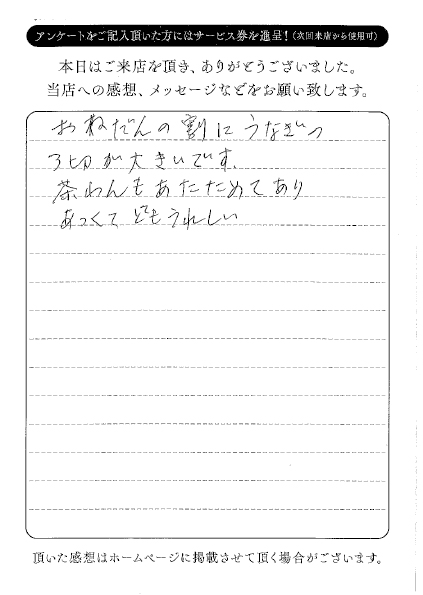 アンケートをご記入頂いた方にはサービス券を進呈！（次回来店から使用可）
本日はご来店を頂き、ありがとうございました。
当店への感想、メッセージなどをお願い致します。
おねだんの割にうなぎの
切が大きいです。
茶わんもあたためてあり
あつくてとてもうれしい
頂いた感想はホームページに掲載させて頂く場合がございます。